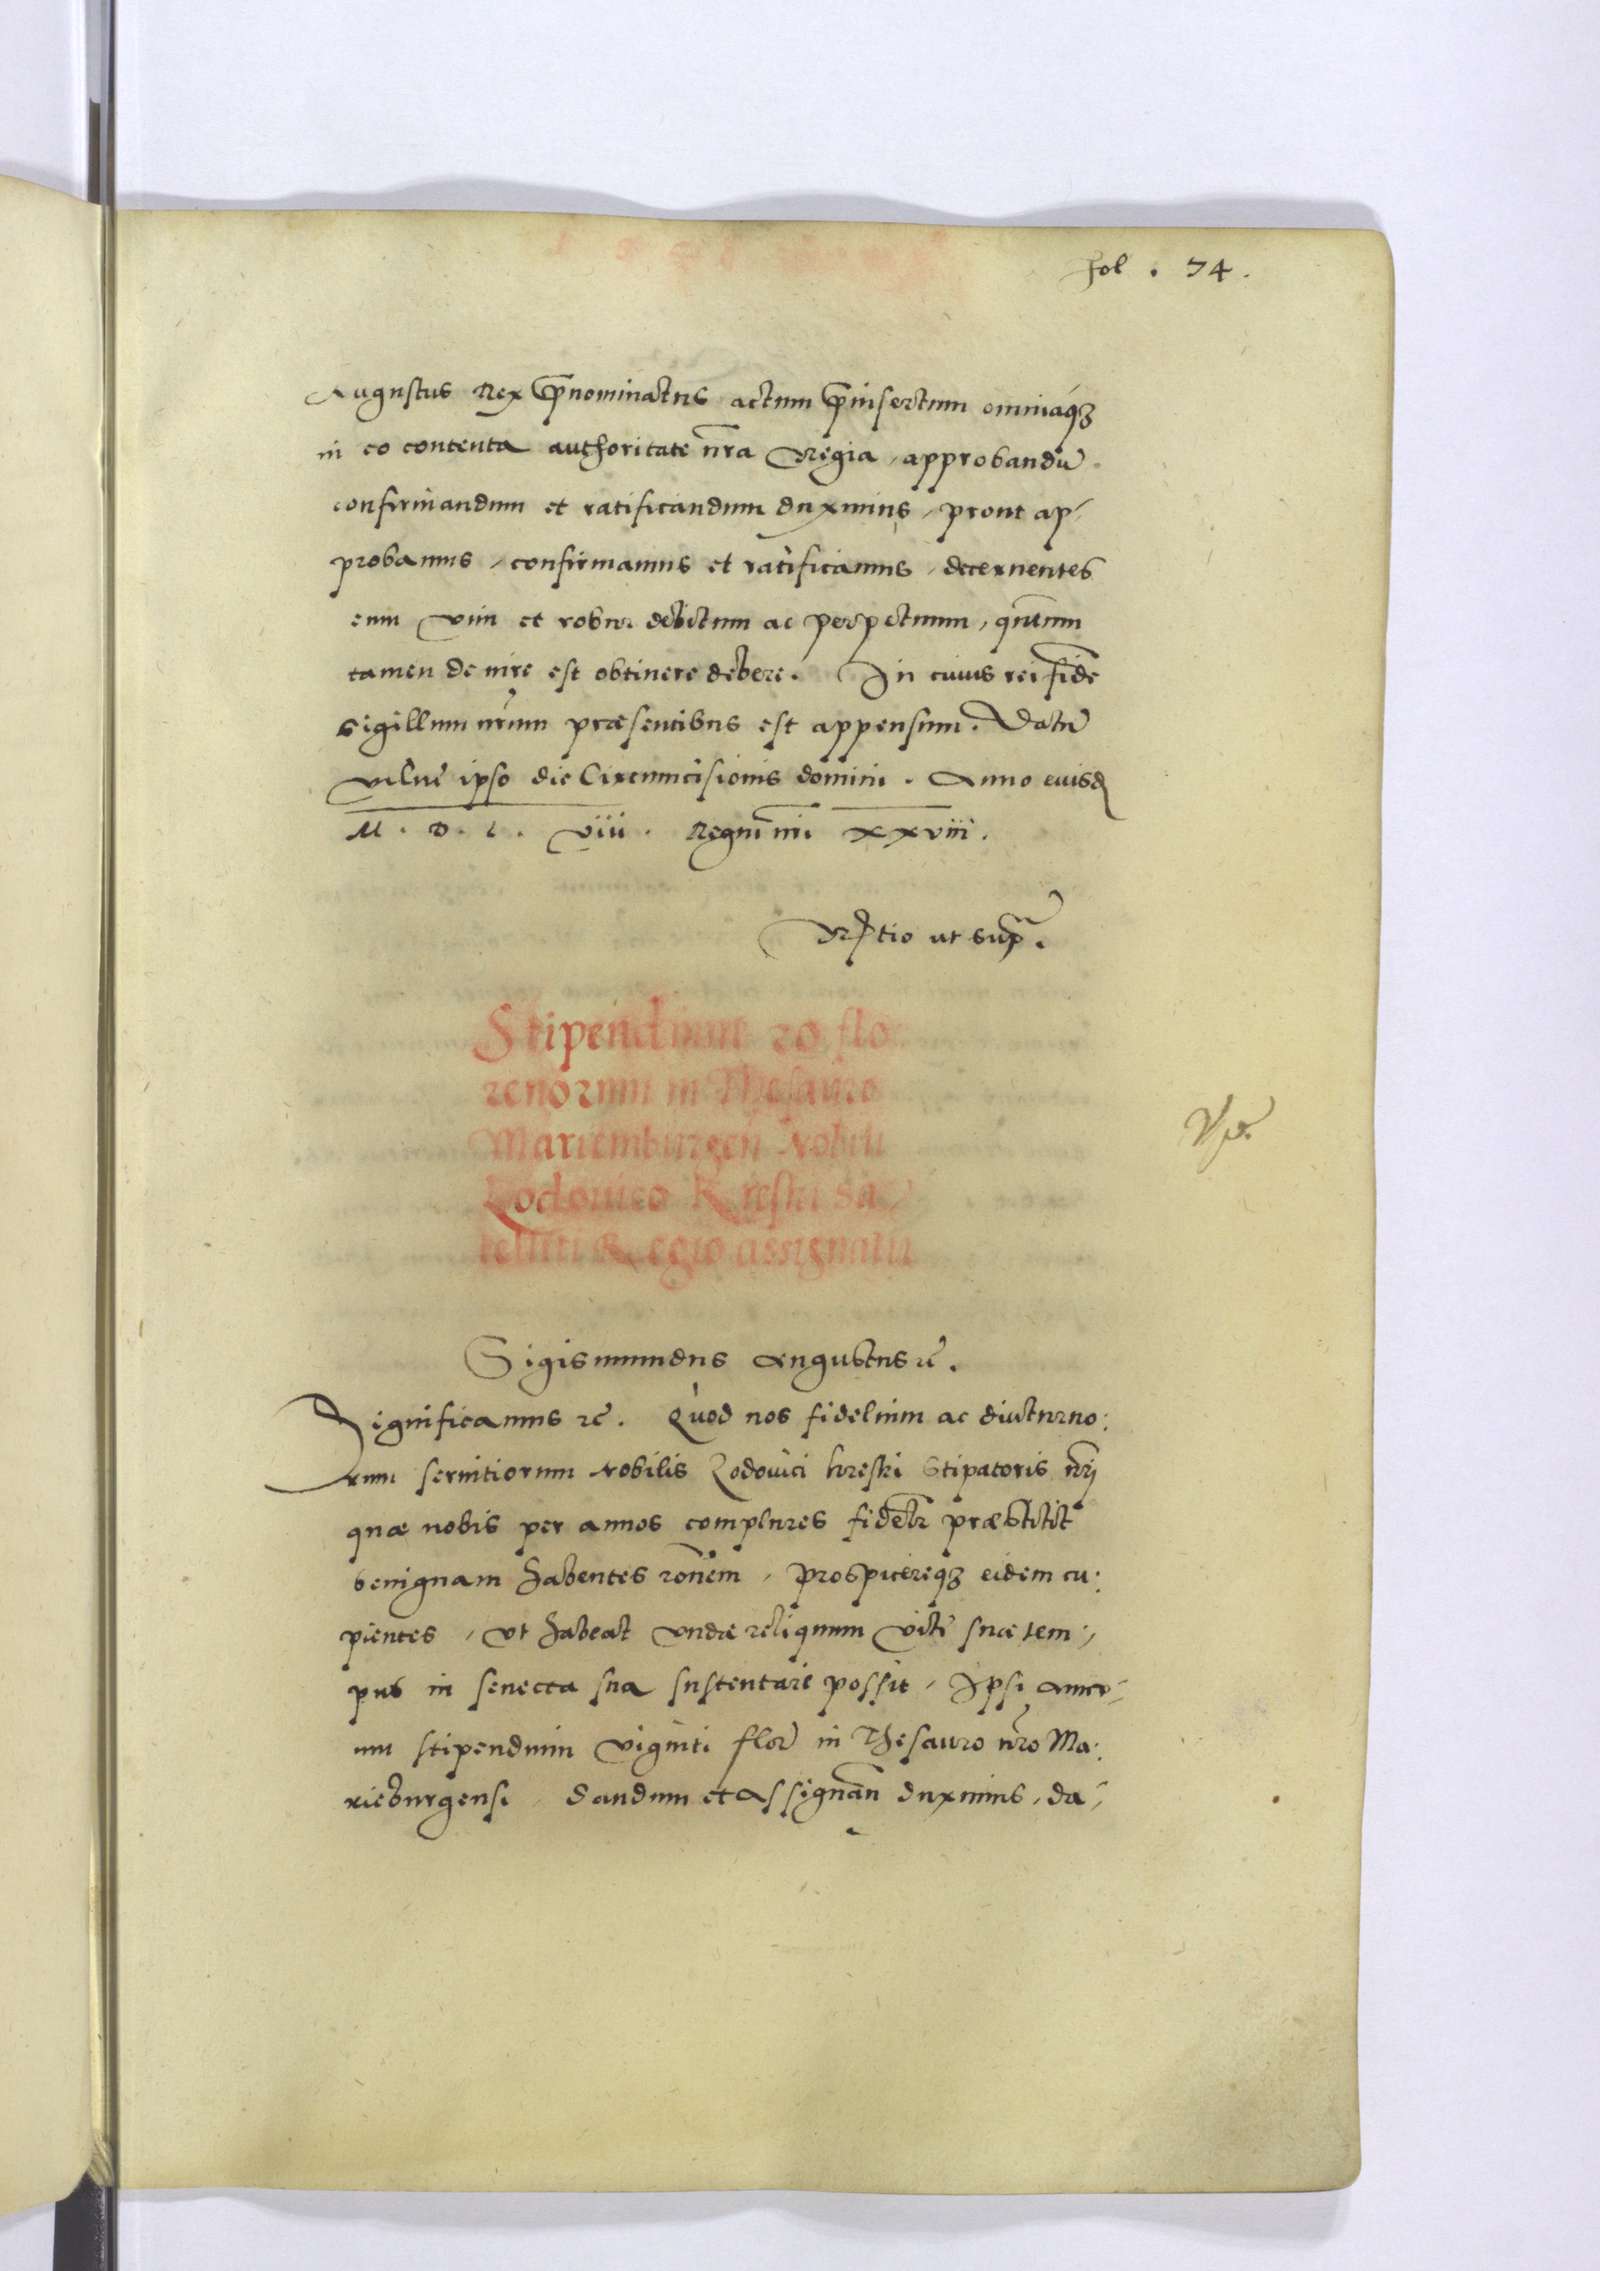 fol . 74 .
Augustus Rex p̄nominatus actum p̄insertum omniaq3
in eo contenta authoritate nr̄a Regia, approbandū
confirmandum et ratificandum duximus, prout ap-
probamus, confirmamus et ratificamus, decernentes
eum vim et robur debitum ac perpetuum, quātum
tamen de iure est obtinere debere. In cuius rei fidē
sigillum nr̄um præsentibus est appensum. Datū
Vilnē ipso die Circumcisionis domini. Anno euisd
M . D . L . viii . Regni nr̄i xxviii.
Rltio ut supr.
Stipendium 20 flo
renorum in Thesauro
Mariemburgen Nobili
Lodouico Kreski Sa
telliti Regio assignatū
Sigismundus Augustus rc̄.
Significamus rc̄. Quod nos fidelium ac diuturno:
rum seruitiorum Nobilis Lodouici Kreski Stipatoris nr̄i
quæ nobis per annos complures fidelr̄ præstitit
benignam habentes ron̄em, prospicereq3 eidem cu:
pientes, vt habeat vndæ reliquum vitē suæ tem:
pus in senecta sua sustentare possit, Ipsi annu-
um stipendium viginti flor in Thesauro nr̄o Ma:
rieburgensi dandum et assignan̄ duximus, da-